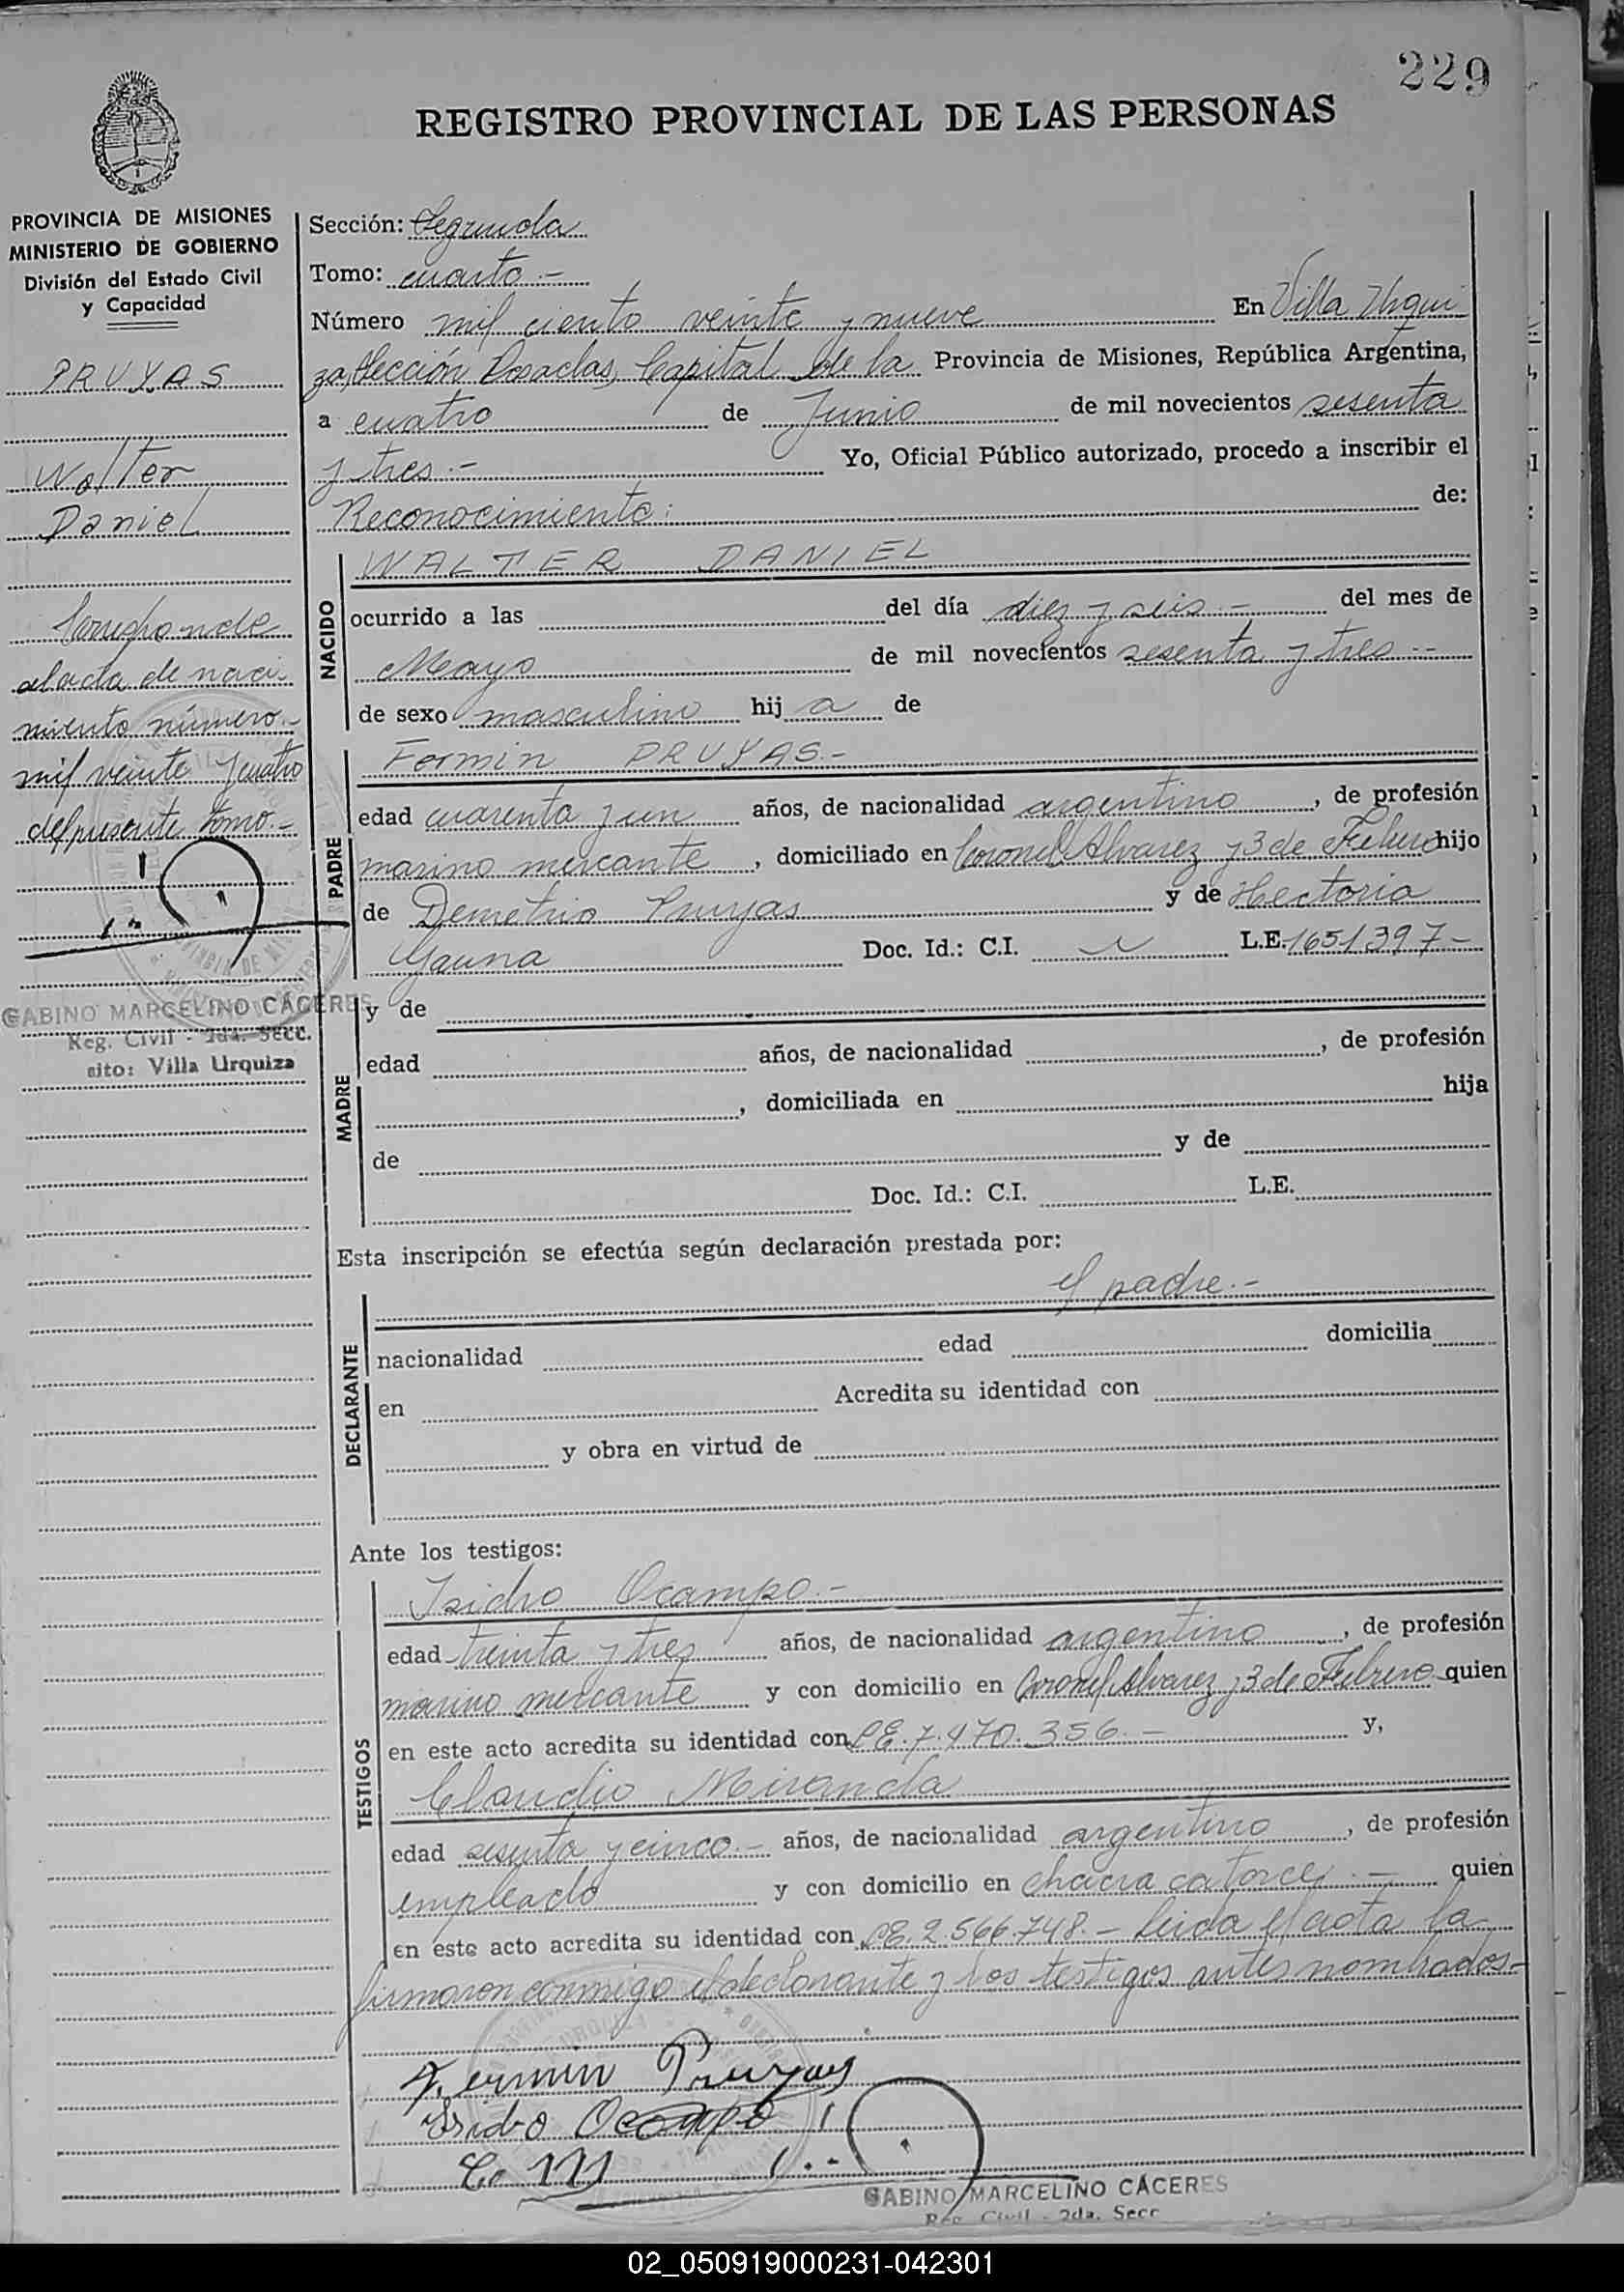 229
REGISTRO PROVINCIAL DE LAS PERSONAS
PROVINCIA DE MISIONES
MINISTERIO DE GOBIERNO
División del Estado Civil
y Capacidad
PRUYAS
Walter
Daniel
Corresponde
al acta de naci
miento número.-
mil veinte y cuatro
del presente tomo.-
GABINO MARCELINO CÁCERES
Reg. Civil - 2da. Secc.
sito: Villa Urquiza
Sección: Segunda
Tomo: cuarto.-
Número mil ciento veinte y nueve En Villa Urqui
za, Sección Posadas, Capital de la Provincia de Misiones, República Argentina,
a cuatro de Junio de mil novecientos sesenta
y tres.- Yo, Oficial Público autorizado, procedo a inscribir el
Reconocimiento: de:
NACIDO
WALTER DANIEL
ocurrido a las del día diez y seis.- del mes de
Mayo de mil novecientos sesenta y tres.--
de sexo masculino hij a de
PADRE
Fermin PRUYAS.-
edad cuarenta y un años, de nacionalidad argentino, de profesión
marino mercante, domiciliado en Coronel Alvarez y 3 de Febrero hijo
de Demetrio Pruyas y de Hectoria
Gauna Doc. Id.: C.I. L.E. 1651397-
MADRE
y de
edad años, de nacionalidad , de profesión
, domiciliada en hija
de y de
Doc. Id.: C.I. L.E.
Esta inscripción se efectúa según declaración prestada por:
el padre.-
DECLARANTE
nacionalidad edad domicilia
en Acredita su identidad con
y obra en virtud de
Ante los testigos:
TESTIGOS
Isidro Ocampo.-
edad treinta y tres años, de nacionalidad argentino, de profesión
marino mercante y con domicilio en Coronel Alvarez y 3 de Febrero quien
en este acto acredita su identidad con LE.7.470.356.- y,
Claudio Miranda
edad sesenta y cinco.- años, de nacionalidad argentino, de profesión
empleado y con domicilio en chacra catorce.- quien
en este acto acredita su identidad con LE.2.566.748.- Leida el acta la
firmaron conmigo el declarante y los testigos antes nombrados-
Fermin Pruyas
Isidro Ocampo
GABINO MARCELINO CÁCERES
Reg. Civil - 2da. Secc
02_050919000231-042301